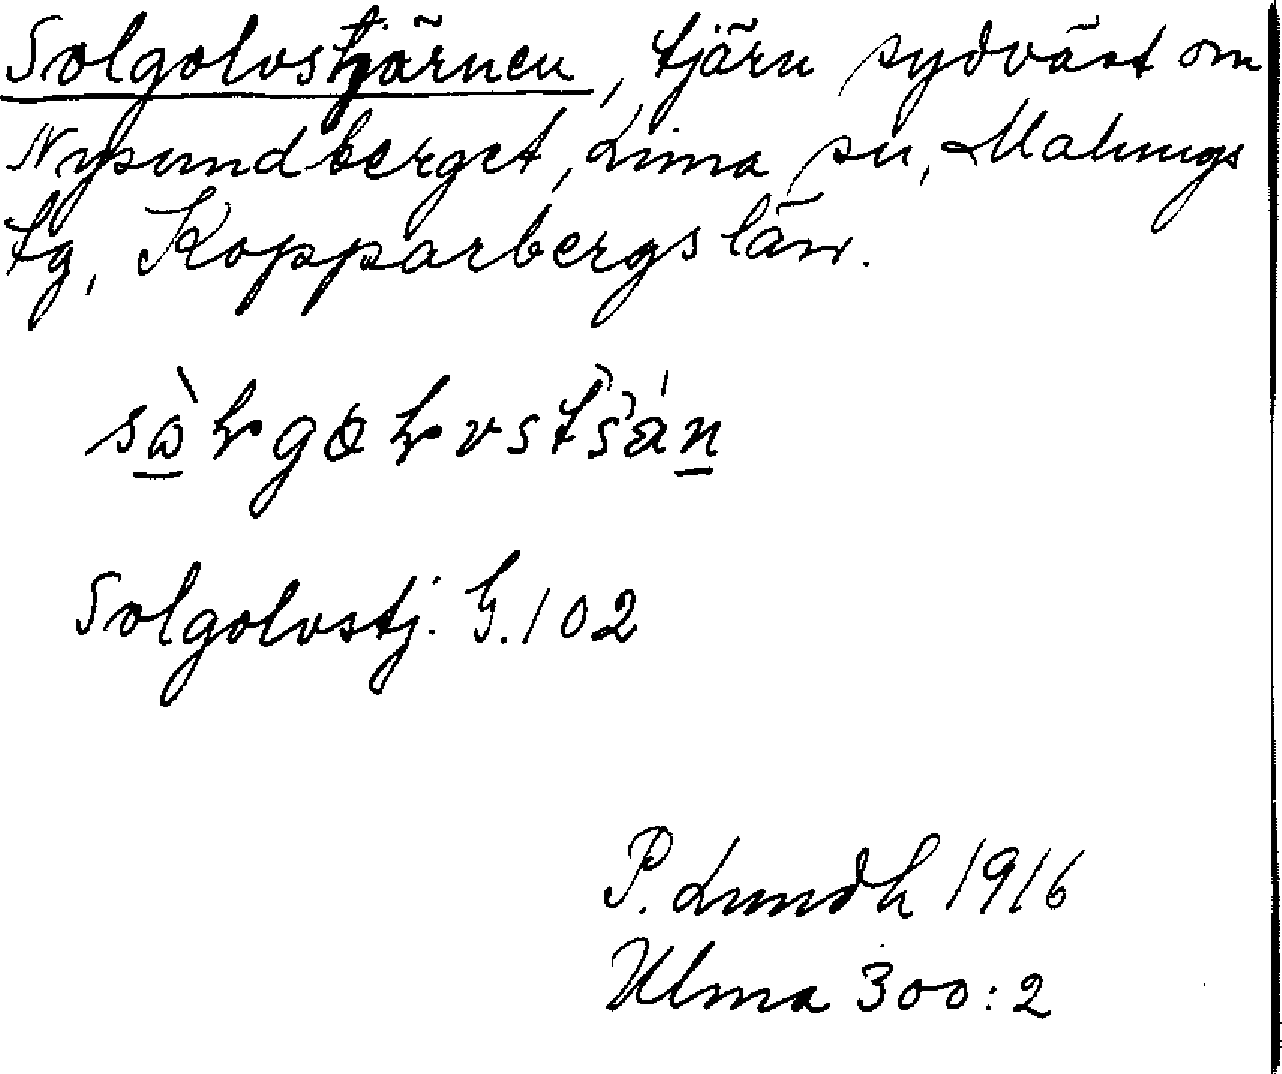 Solgolvstjärnen, tjärn sydväst om
Nysundberget, Lima sn, Malungs
tg, Kopparbergs län.
Solgolvstj. G. 102
P. Lundh 1916
Ulma 300:2